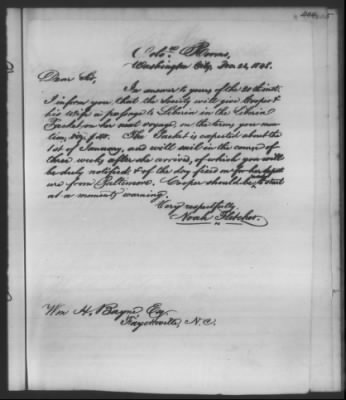 Colo.n Rooms,
Washington City, Dec. 22, 1848.
Dear Sir,
In answer to yours of the 20th inst.
I inform you that the Society will give Cooper &
his wife a passage to Liberia in the Liberia
Packet on her next voyage on the terms you men-
tion, viz; $100. The Packet is expected about the
1st of January, and will sail in the course of
three weeks after she arrives, of which you will
be duly notified & of the day fixed on for her depart-
ure from Baltimore. Cooper should be ready to start
at a moment's warning.
Very respectfully,
Noah Fletcher.
Wm H. Bayne Esq
Fayetteville, N.C.